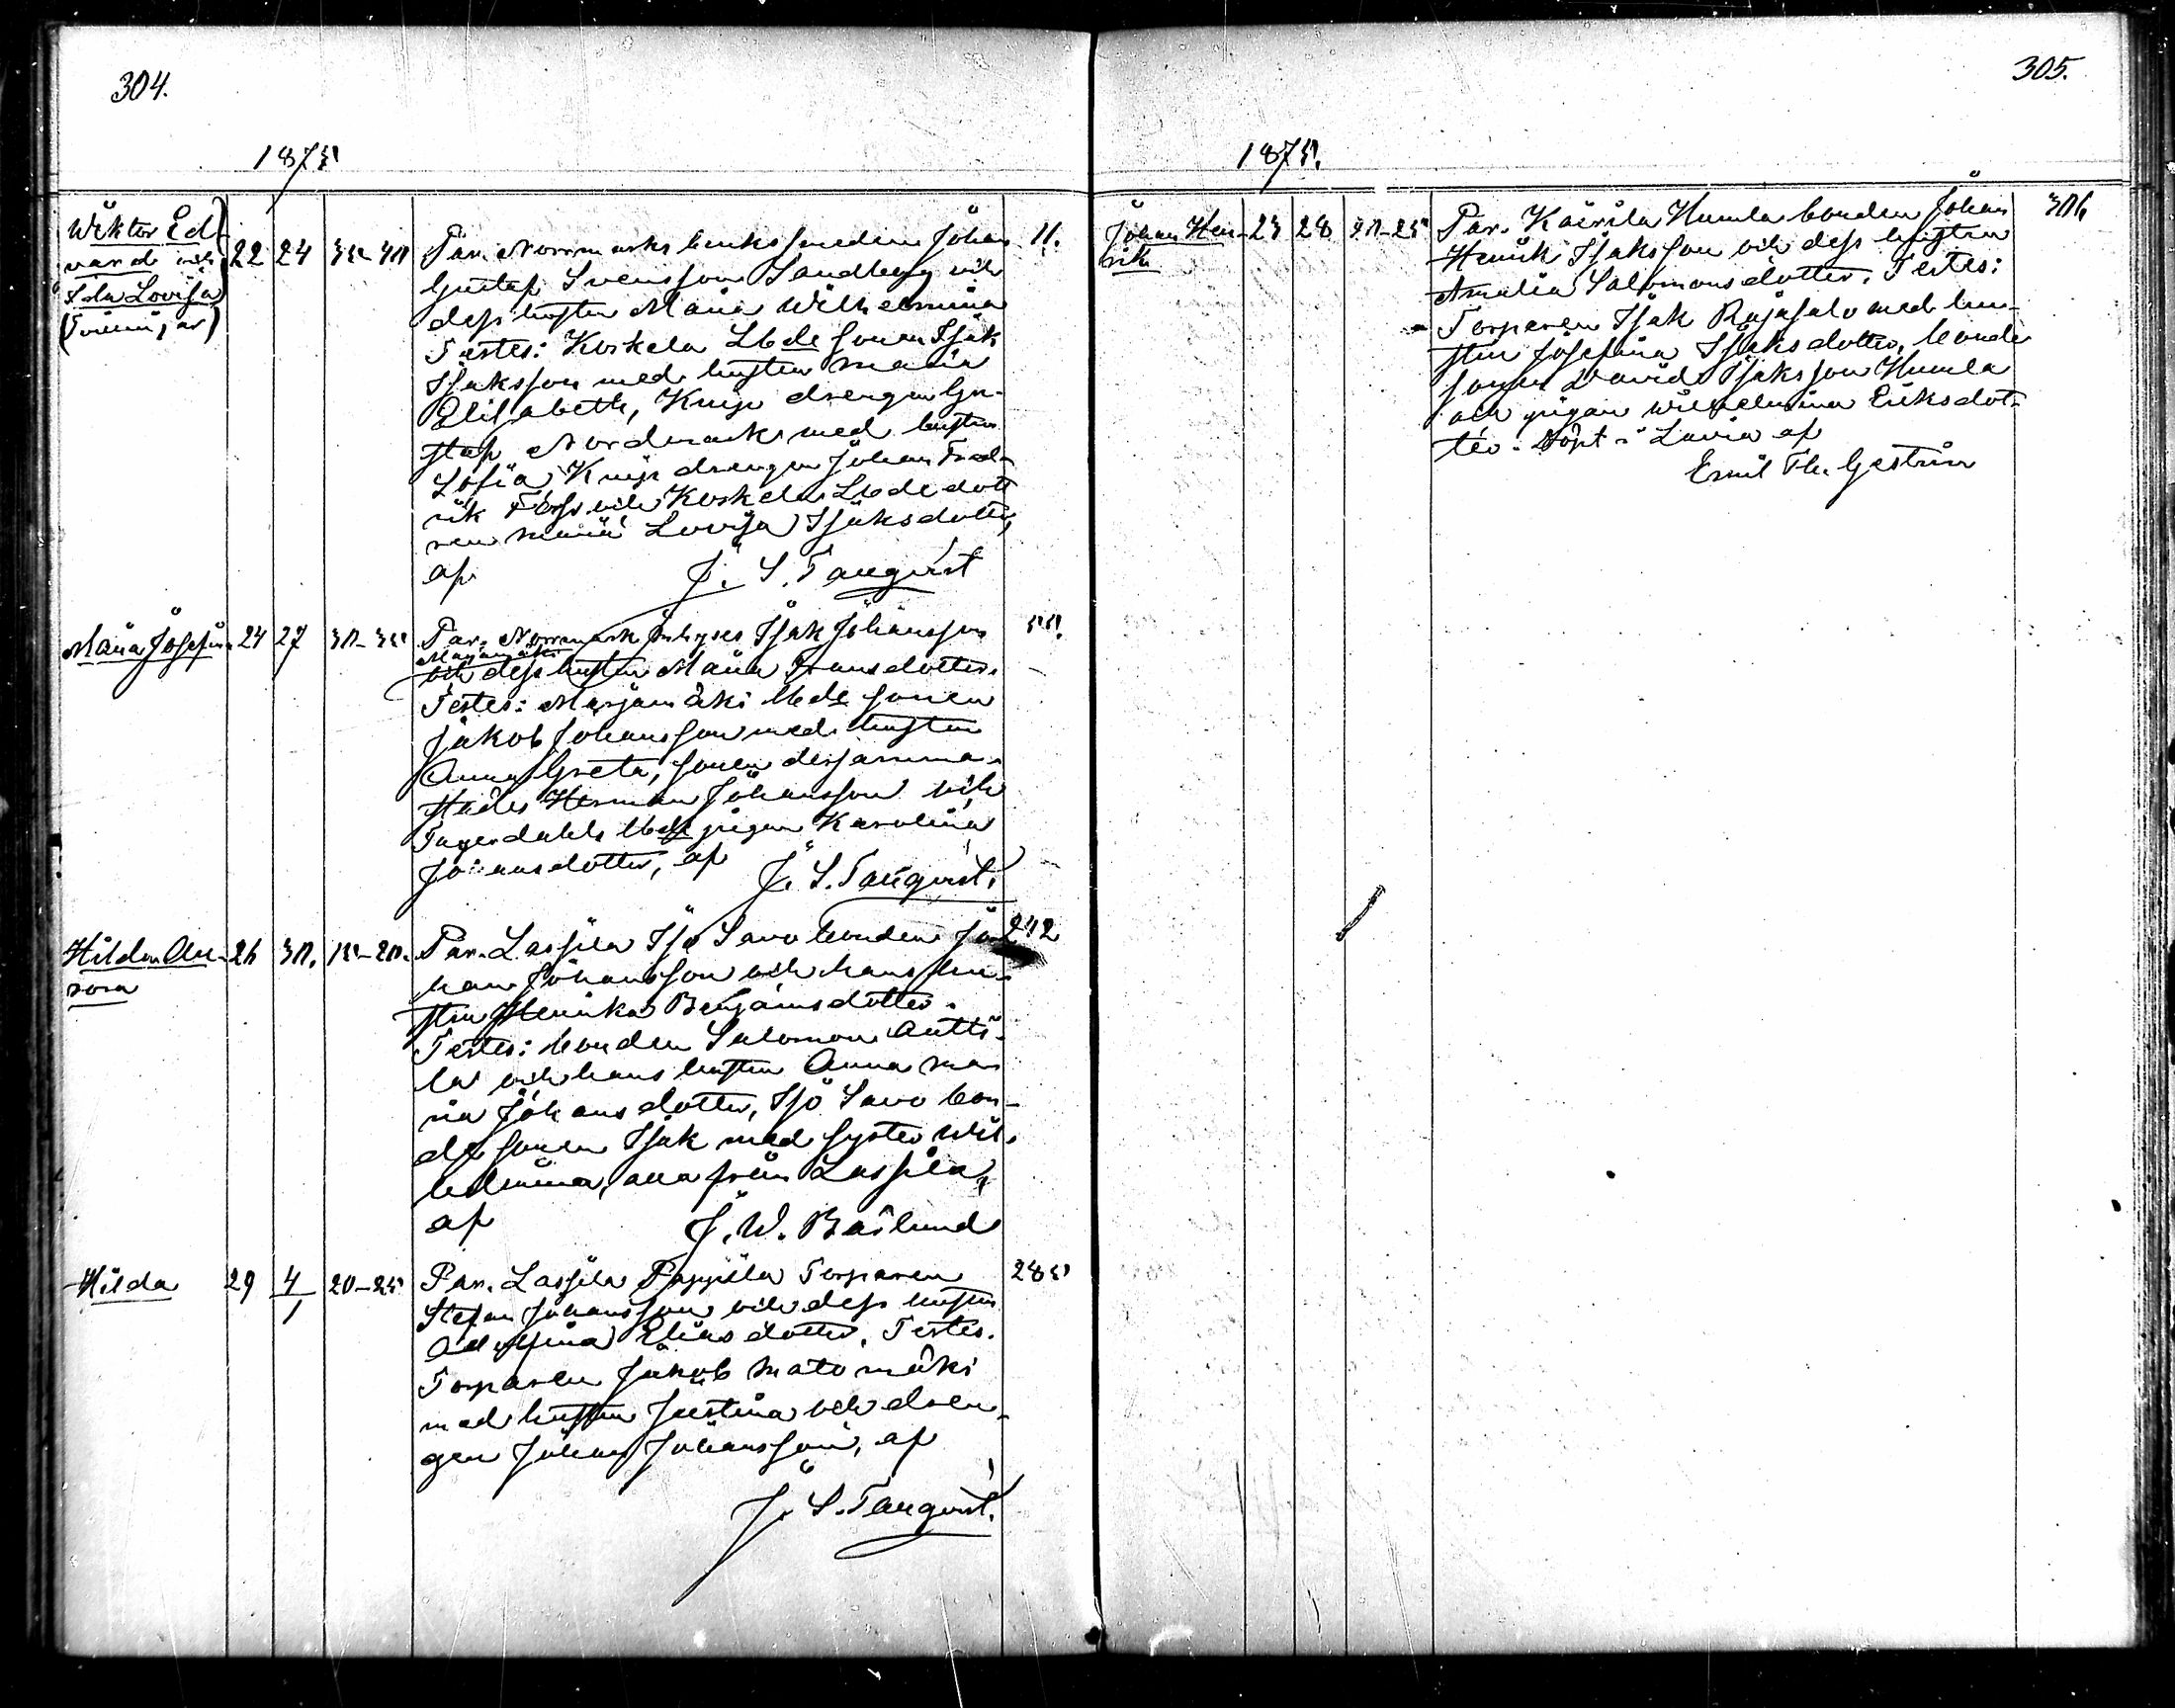 304.
1875
Wiktor Ed-
vard och
Ida Lovisa
(Tvillingar)
22 24 35-40
Par. Norrmarks bruks smeden Johan
Gustaf Svensson Sandberg och
dess hustru Maria Wilhelmina
Testes: Koskela Lbde sonen Isak
Isaksson med hustru Maria
Elisabeth, Knip drengen Gu-
staf Nordmark med hustru
Sofia, Knip drengen Johan Fred-
rik Forss och Koskela Lbde dott
ren Maria Lovisa Isaksdotter,
af J. S. Tanqvist
11.
Maria Josefin
24 27 30-35
Par. Norrmark Inhyses Isak Johansson
Marjamäki
och dess hustru Maria Fransdotter.
Testes: Marjamäki lbde sonen
Jakob Johansson med hustru
Anna Greta, sonen dersamma-
städes Herman Johansson och
lbde pigan Karolina
Johansdotter, af J. S. Tanqvist.
55.
Hilda Au-
rora
26 30. 15-20.
Par. Lassila Iso Savo bonden Jo-
han Johansson och hans hu-
stru Henrika Benjamsdotter.
Testes: bonden Salomon Antti-
la och hans hustru Anna Ma-
ria Johansdotter, Iso Savo bon-
de sonen Isak med syster Wil-
helmina, alla från Lassila,
af J. W. Baslund
242
Hilda
29 4/1 20-25
Par. Lassila Pappila Torparen
Stefan Johansson och dess hustru
Adolfina Eliasdotter. Testes.
Torparen Jakob Matomäki
med hustru Justina och dren-
gen Johan Johansson, af
J. S. Tanqvist.
285
305.
1875.
Johan Hen-
rik
23 28 20-25
Par. Kairila Humla bonden Johan
Henrik Isaksson och dess hustru
Amalia Salomonsdotter. Testes:
Torparen Isak Rajasalo med hu-
stru Josefina Isaksdotter, bonde
sonen David Isaksson Humla
och pigan Wilhelmina Eriksdot-
ter. Döpt i Lavia af
Emil Th. Gestrin
306